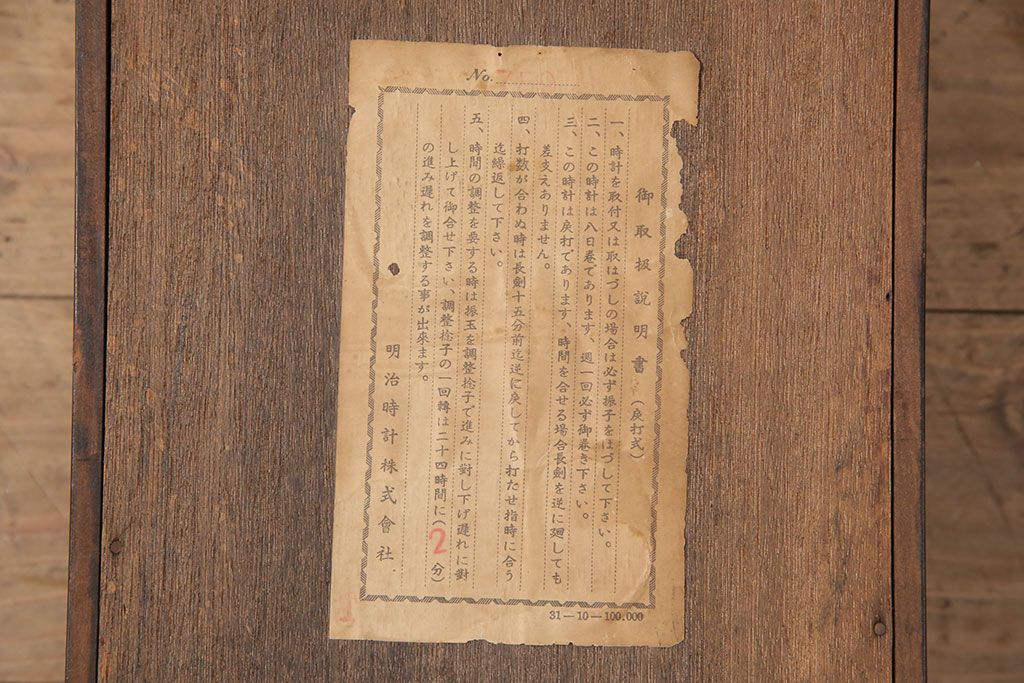 No.
御取扱說明書(戾打式)
一、時計を取付又は取はづしの場合は必ず振子をはづして下さい。
二、この時計は八日巻であります、週一回必ず御巻き下さい。
三、この時計は戾打であります、時間を合せる場合長劍を逆に廻しても
差支えありません。
四、打数が合わぬ時は長劍十五分前迄逆に戾してから打たせ指時に合う
迄繰返して下さい。
五、時間の調整を要する時は振玉を調整捻子で進みに對し下げ遲れに對
し上げて御合せ下さい、調整捻子の一回轉は二十四時間に(2分)
の進み遲れを調整する事が出來ます。
明治時計株式會社
31—10—100.000